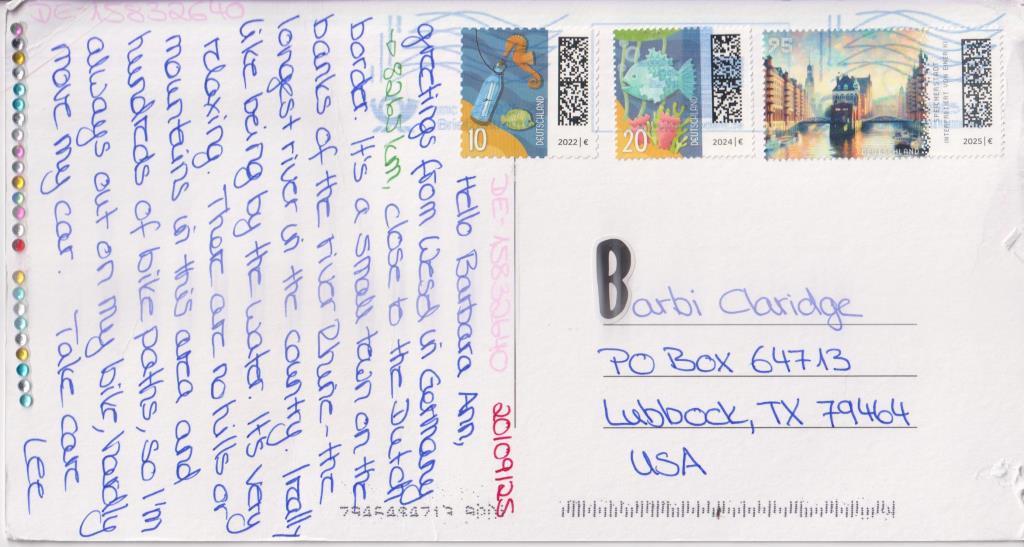 DE-15832640
DE-15832640 20/09/25
Hello Barbara Ann,
greetings from Wesel in Germany
→ 8265 km, close to the Dutch
border. It's a small town on the
banks of the river Rhine - the
longest river in the country. I really
like being by the water. It's very
relaxing. There are no hills or
mountains in this area and
hundreds of bike paths, so I'm
always out on my bike, hardly
move my car. Take care
Lee
10
DEUTSCHLAND
2022 | €
20
DEUTSCHLAND
2024 | €
95
SPEICHERSTADT
DEUTSCHLAND
2025 | €
Barbi Claridge
PO Box 64713
Lubbock, TX 79464
USA